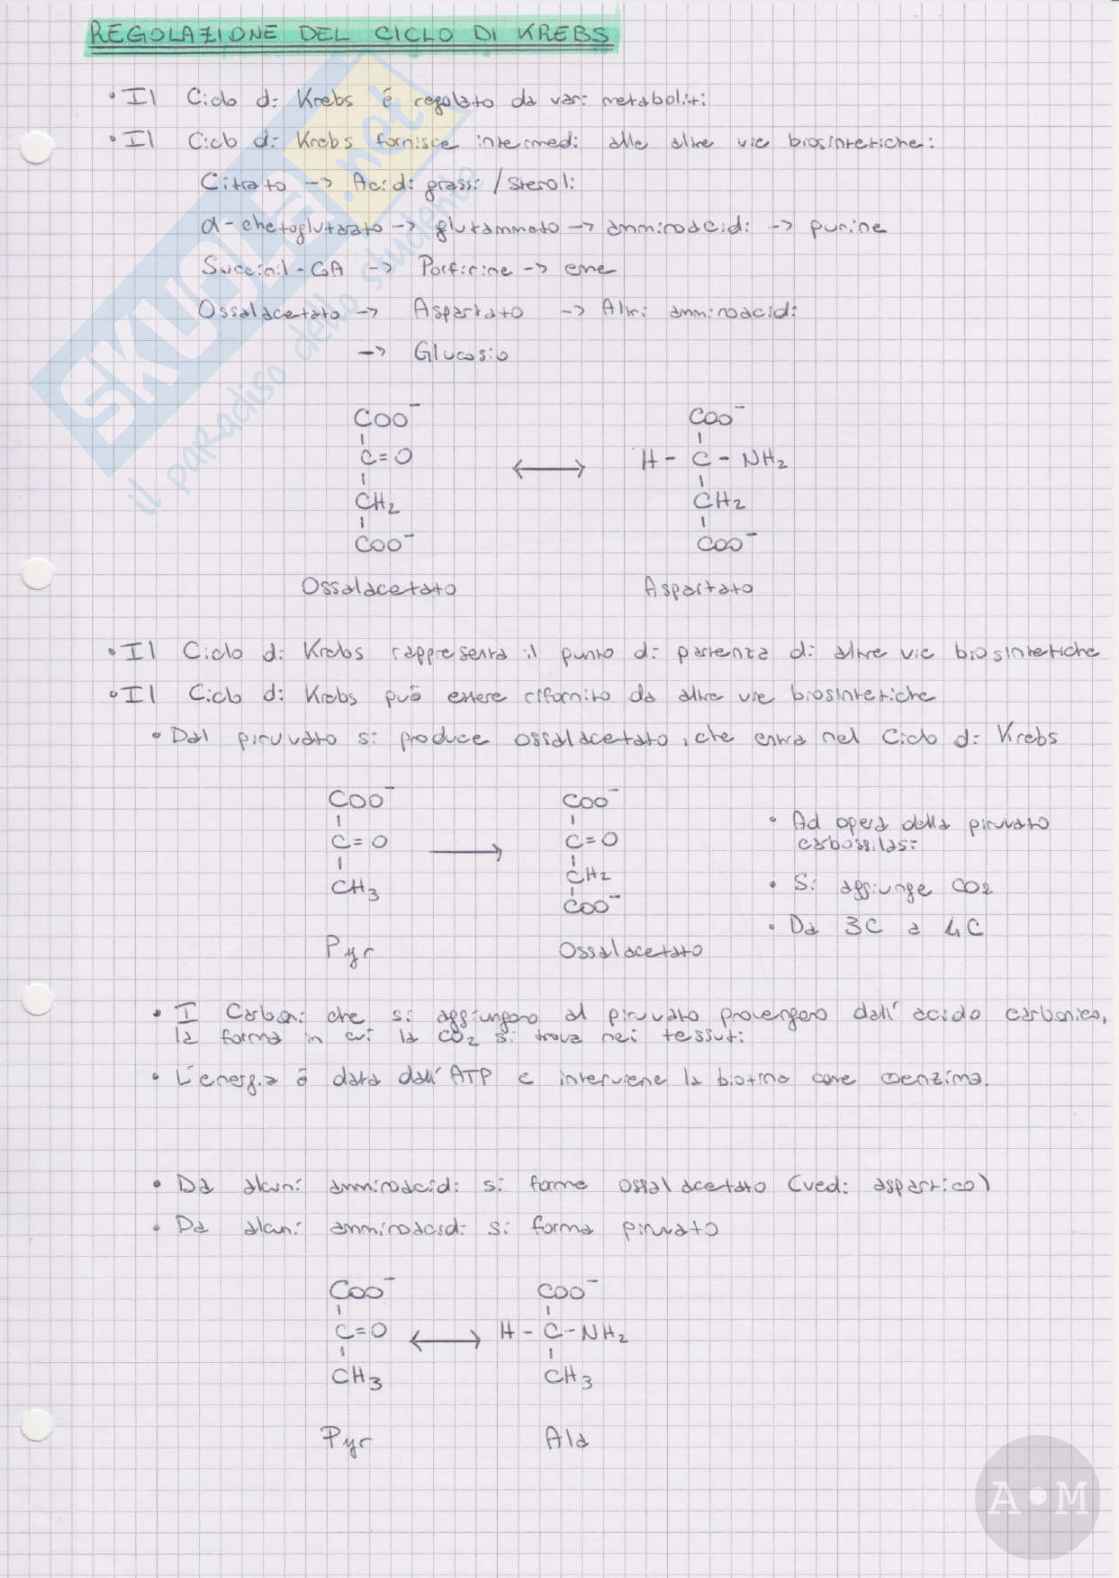 REGOLAZIONE DEL CICLO DI KREBS
• Il Ciclo di Krebs è regolato da vari metaboliti
• Il Ciclo di Krebs fornisce intermedi alle altre vie biosintetiche:
Citrato -> Acidi grassi / steroli
α-chetoglutarato -> glutammato -> amminoacidi -> purine
Succinil-CoA -> Porfirine -> eme
Ossalacetato -> Aspartato -> Altri amminoacidi
-> Glucosio
COO⁻ COO⁻
C=O ↔ H - C - NH₂
CH₂ CH₂
COO⁻ COO⁻
Ossalacetato Aspartato
• Il Ciclo di Krebs rappresenta il punto di partenza di altre vie biosintetiche
• Il Ciclo di Krebs può essere rifornito da altre vie biosintetiche
• Dal piruvato si produce ossalacetato, che entra nel Ciclo di Krebs
COO⁻ COO⁻
C=O → C=O
CH₃ CH₂
COO⁻
Pyr Ossalacetato
• Ad opera della piruvato
carbossilasi
• Si aggiunge CO₂
• Da 3C a 4C
• I Carboni che si aggiungono al piruvato provengono dall'acido carbonico,
la forma in cui la CO₂ si trova nei tessuti
• L'energia è data dall'ATP e interviene la biotina come coenzima.
• Da alcuni amminoacidi si forma ossalacetato (vedi aspartico)
• Da alcuni amminoacidi si forma piruvato
COO⁻ COO⁻
C=O ↔ H - C - NH₂
CH₃ CH₃
Pyr Ala
SKUOLA.net
il paradiso dello studente
A•M